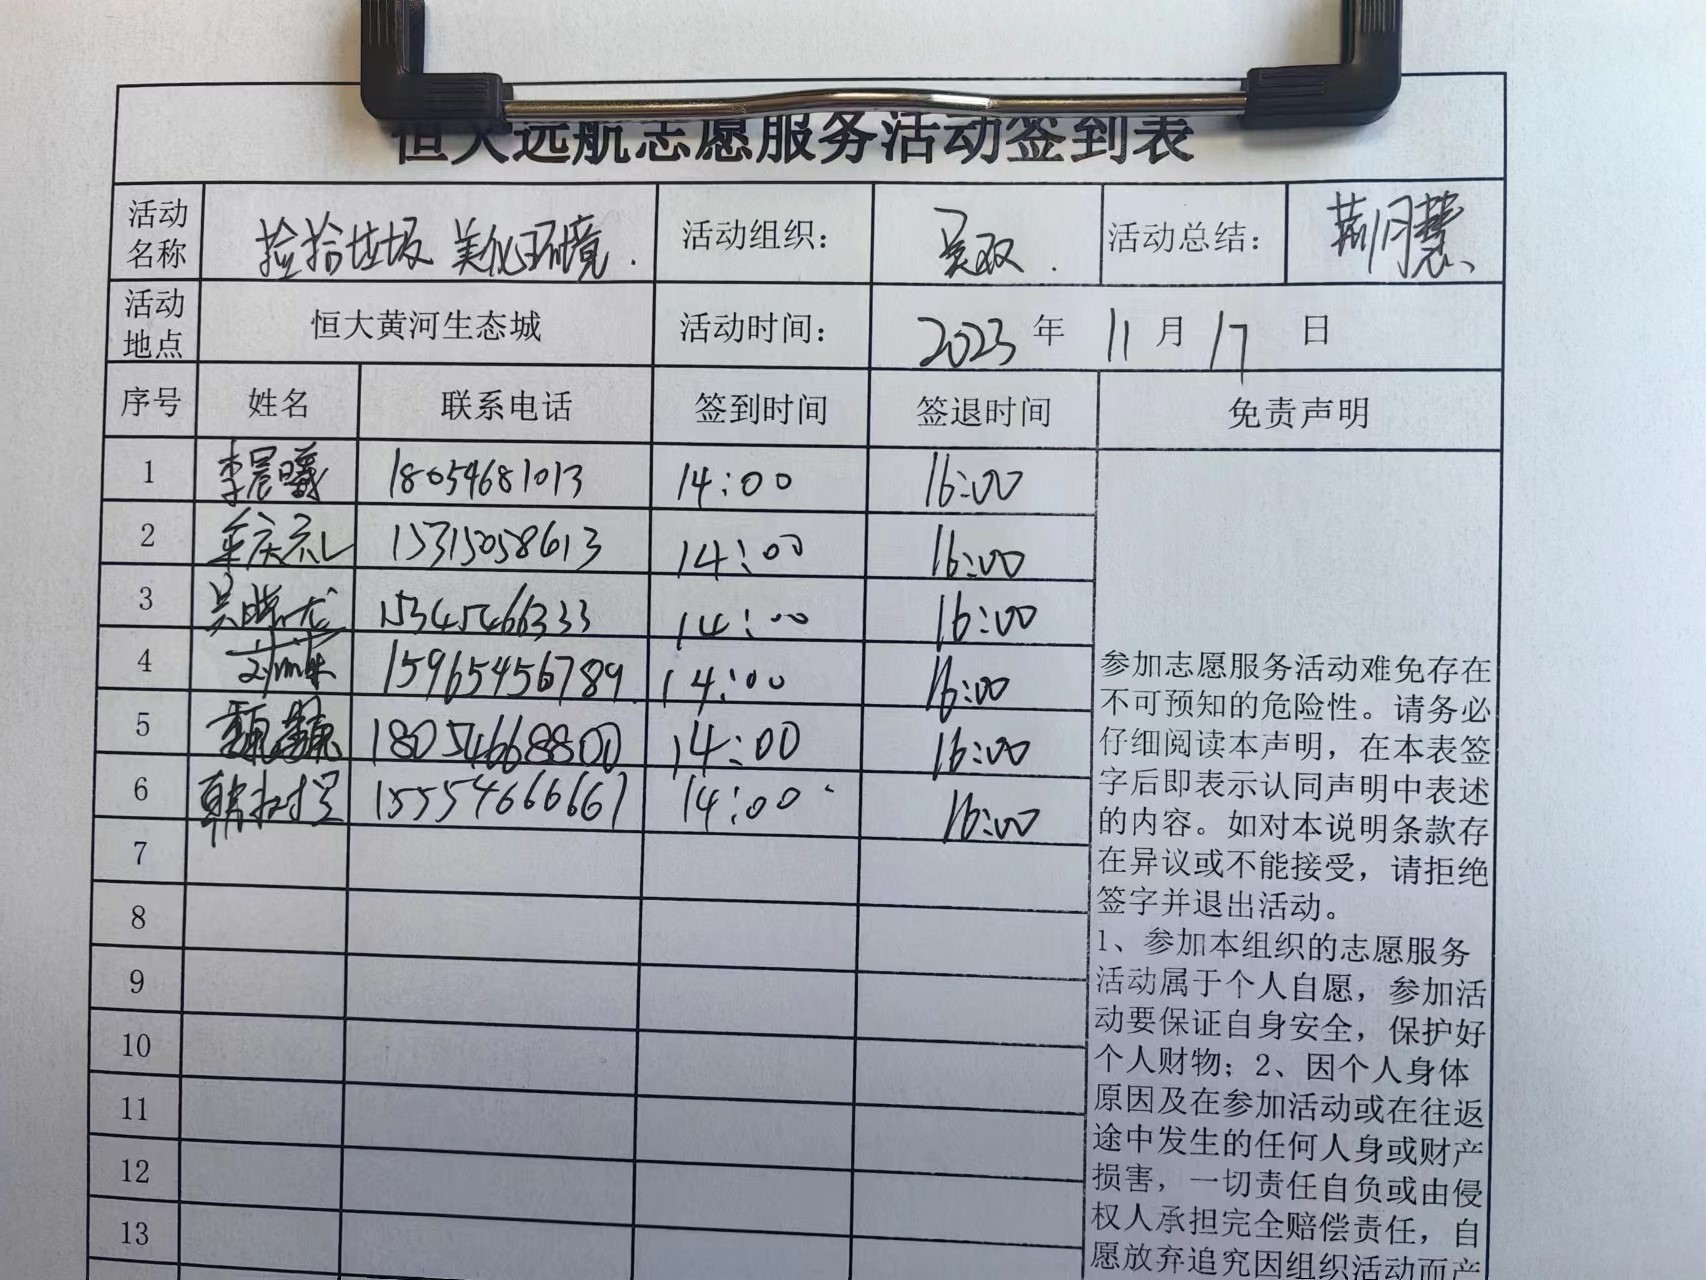 恒大远航志愿服务活动签到表
活动名称 捡拾垃圾 美化环境. 活动组织: 吴双. 活动总结: 荆月慧
活动地点 恒大黄河生态城 活动时间: 2023 年 11 月 17 日
序号 姓名 联系电话 签到时间 签退时间 免责声明
1 李晨曦 18054681013 14:00 16:00
2 15315058613 14:00 16:00
3 吴晓龙 15345466333 14:00 16:00
4 15965456789 14:00 16:00
5 18054668800 14:00 16:00
6 15554666667 14:00 16:00
7
8
9
10
11
12
13
参加志愿服务活动难免存在
不可预知的危险性。请务必
仔细阅读本声明，在本表签
字后即表示认同声明中表述
的内容。如对本说明条款存
在异议或不能接受，请拒绝
签字并退出活动。
1、参加本组织的志愿服务
活动属于个人自愿，参加活
动要保证自身安全，保护好
个人财物；2、因个人身体
原因及在参加活动或在往返
途中发生的任何人身或财产
损害，一切责任自负或由侵
权人承担完全赔偿责任，自
愿放弃追究因组织活动而产